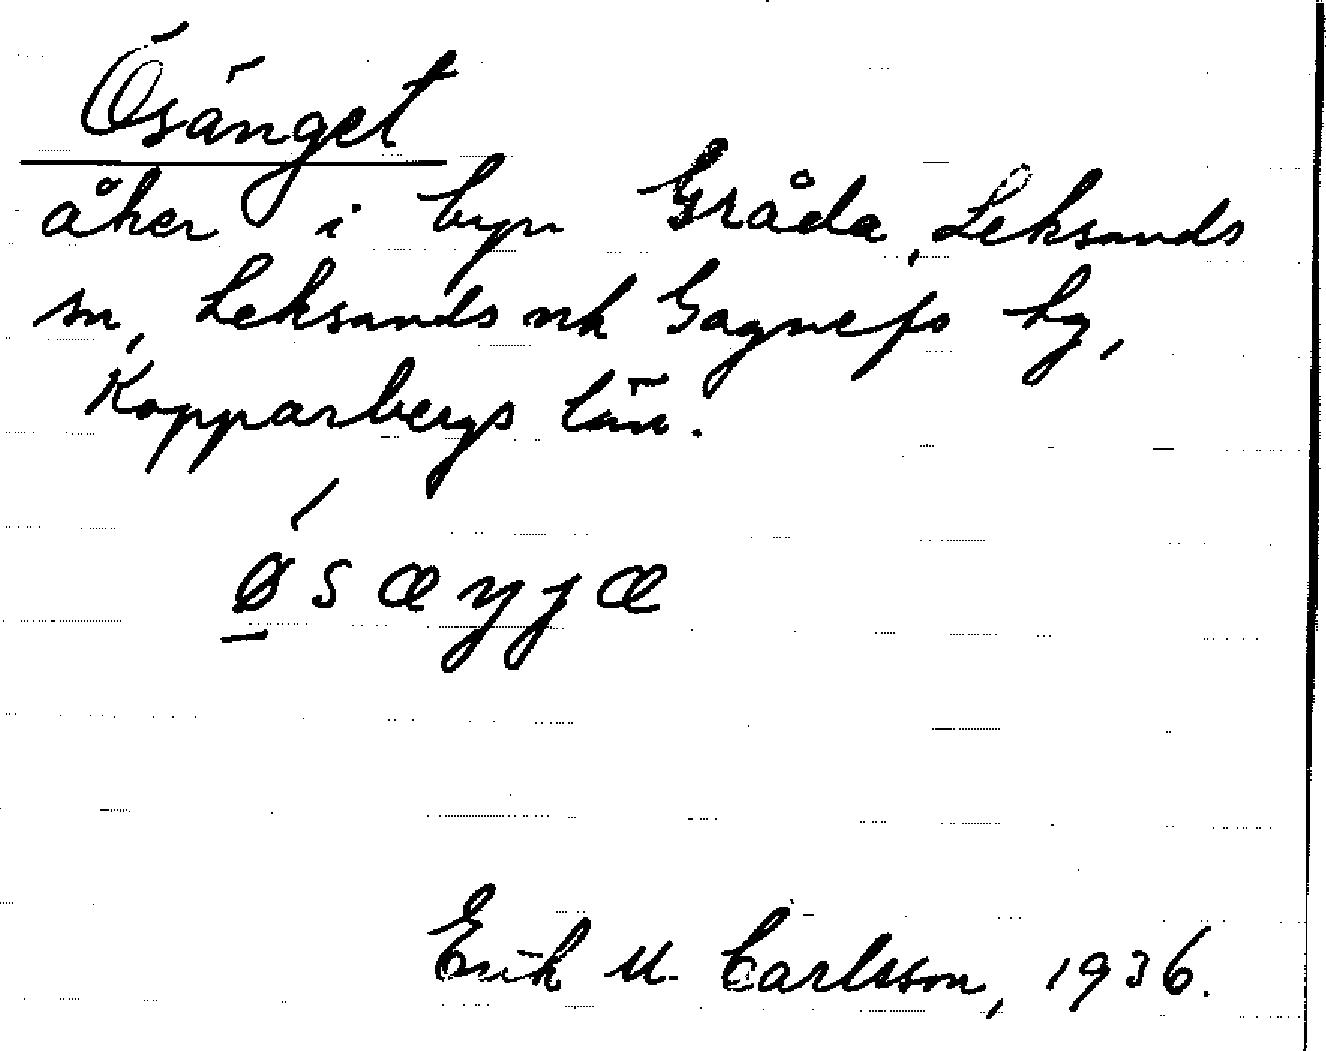 Ösänget
åker i byn Gråda, Leksands
sn, Leksands o Gagnefs tg,
Kopparbergs län.
ø s æ ŋ j æ
Erik M. Carlsson, 1936.